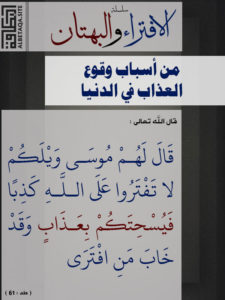 سلسلة
الافتراء والبهتان
ALBETAQA.SITE
من أسباب وقوع
العذاب في الدنيا
قال الله تعالى :
قَالَ لَهُمْ مُوسَى وَيْلَكُمْ
لَا تَفْتَرُوا عَلَى اللَّهِ كَذِبًا
فَيُسْحِتَكُمْ بِعَذَابٍ وَقَدْ
خَابَ مَنِ افْتَرَى
( طه : 61 )